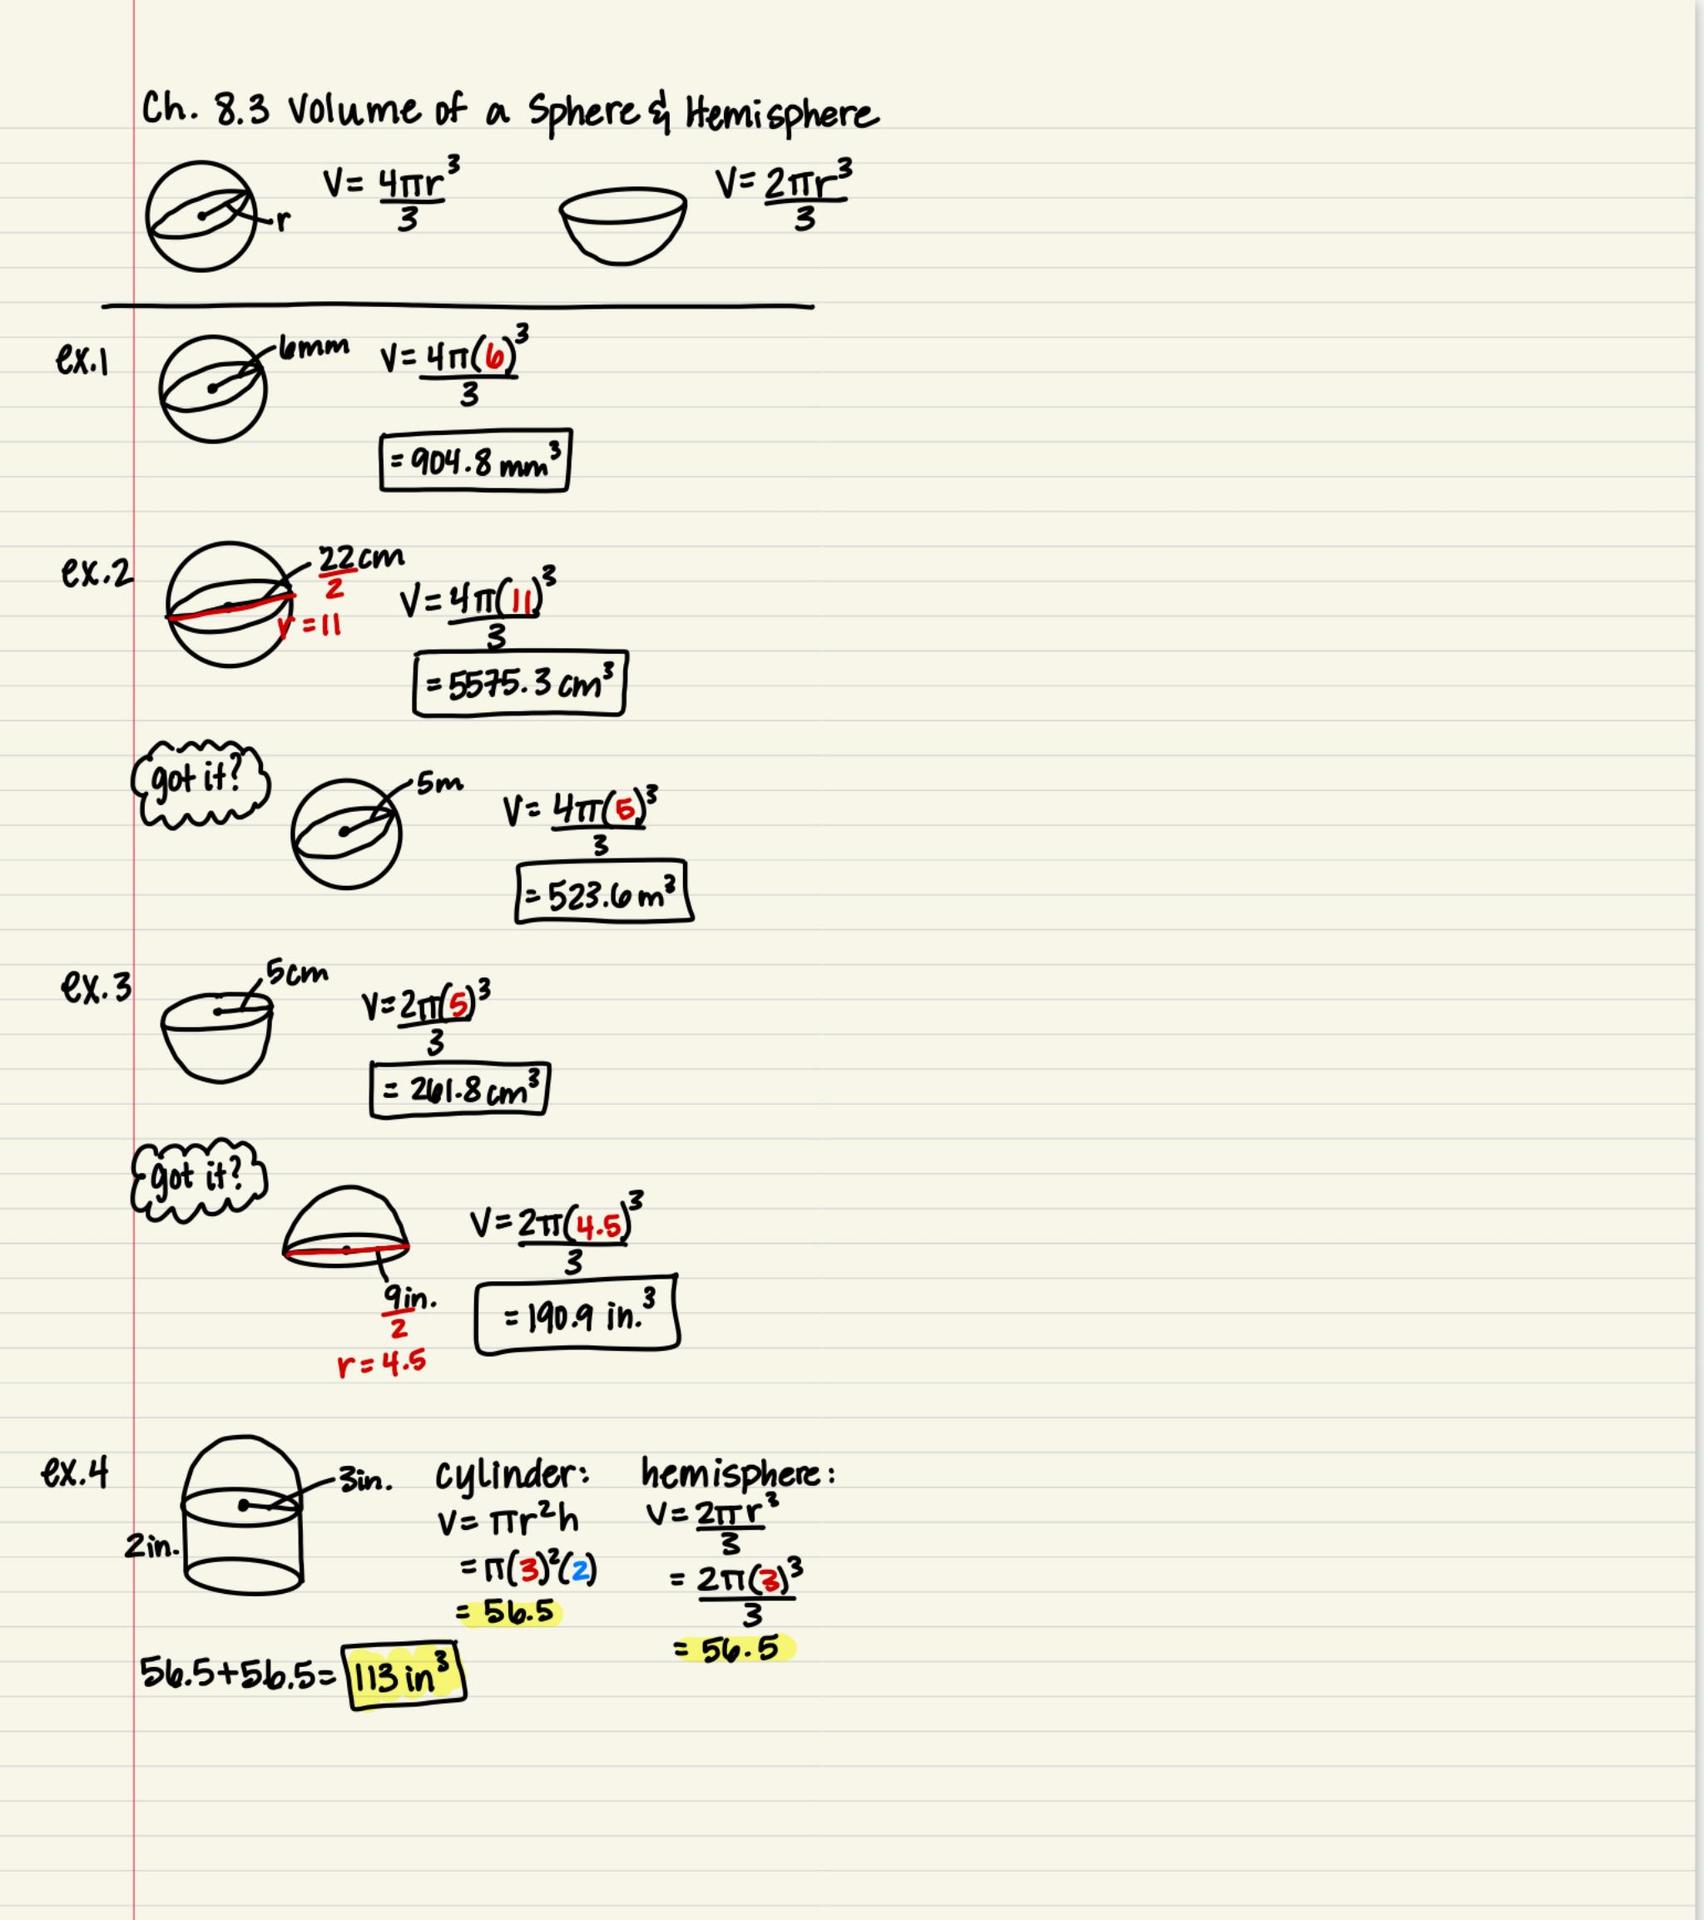 Ch. 8.3 Volume of a Sphere & Hemisphere
r
V = 4πr³/3
V = 2πr³/3
ex.1
6mm
V = 4π(6)³/3
= 904.8 mm³
ex.2
22cm/2
r = 11
V = 4π(11)³/3
= 5575.3 cm³
got it?
5m
V = 4π(5)³/3
= 523.6 m³
ex.3
5cm
V = 2π(5)³/3
= 261.8 cm³
got it?
9in./2
r = 4.5
V = 2π(4.5)³/3
= 190.9 in.³
ex.4
3in.
2in.
cylinder:
V = πr²h
= π(3)²(2)
= 56.5
hemisphere:
V = 2πr³/3
= 2π(3)³/3
= 56.5
56.5+56.5= 113 in³